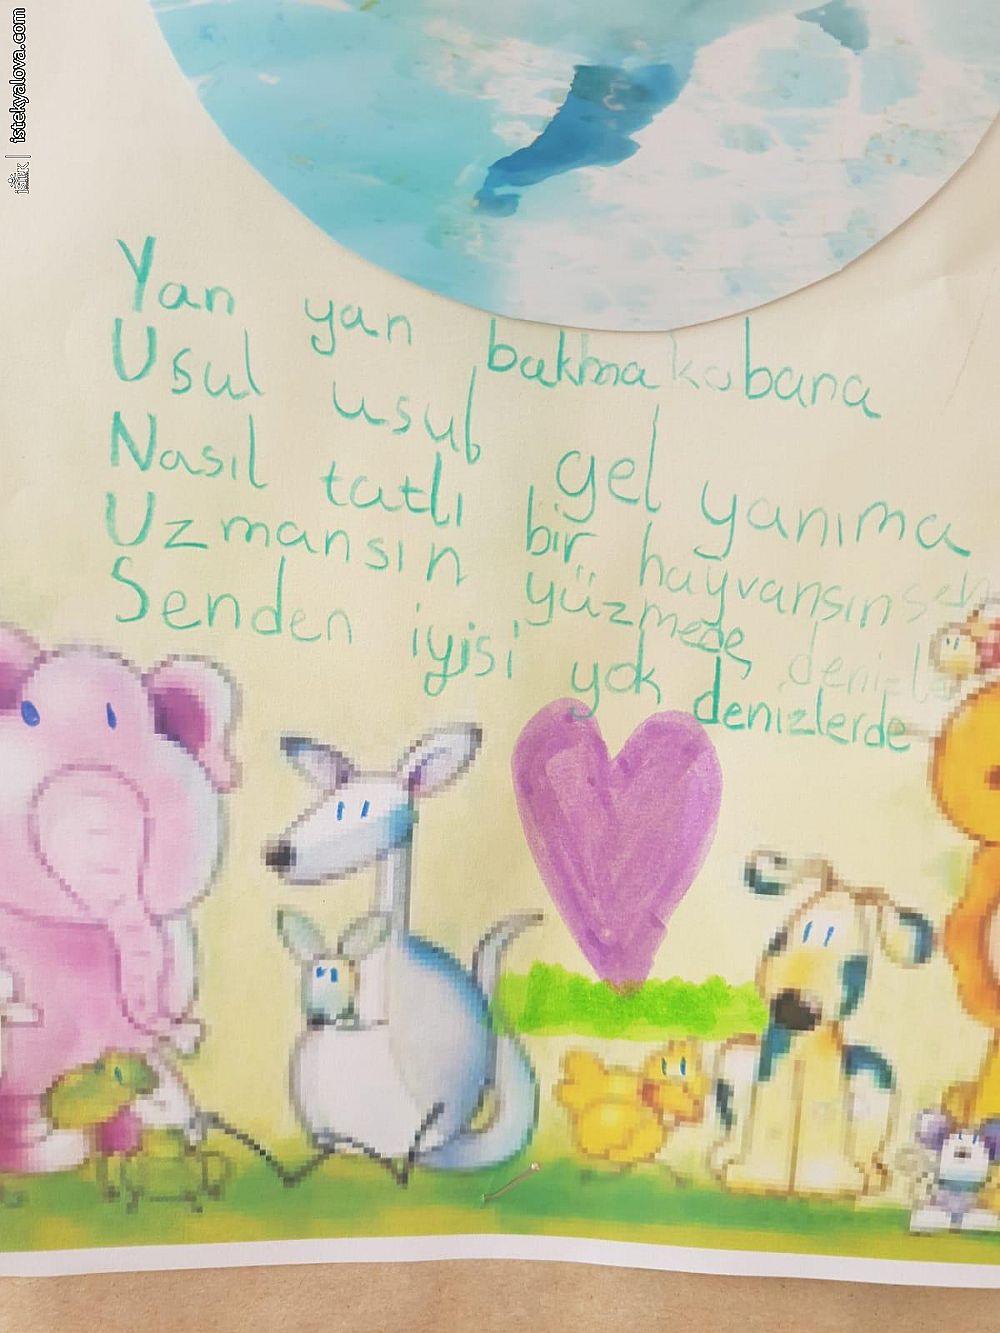 istekyalova.com
Yan yan bakma bana
Usul usul gel yanıma
Nasıl tatlı bir hayvansın sen
Uzmansın yüzmede
Senden iyisi yok denizlerde